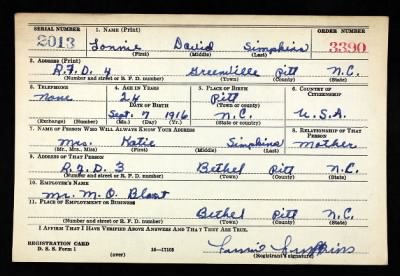 SERIAL NUMBER 1. NAME (Print) ORDER NUMBER
2013 Lonnie David Simpkins 3390
(First) (Middle) (Last)
2. ADDRESS (Print)
R.F.D. 4 Greenville Pitt N.C.
(Number and street or R. F. D. number) (Town) (County) (State)
3. TELEPHONE 4. AGE IN YEARS 5. PLACE OF BIRTH 6. COUNTRY OF CITIZENSHIP
None 24 Pitt
DATE OF BIRTH (Town or county)
Sept. 7 1916 N.C. U.S.A.
(Exchange) (Number) (Mo.) (Day) (Yr.) (State or country)
7. NAME OF PERSON WHO WILL ALWAYS KNOW YOUR ADDRESS 8. RELATIONSHIP OF THAT PERSON
Mrs. Katie Simpkins Mother
(Mr., Mrs., Miss) (First) (Middle) (Last)
9. ADDRESS OF THAT PERSON
R.F.D 3 Bethel Pitt N.C.
(Number and street or R. F. D. number) (Town) (County) (State)
10. EMPLOYER'S NAME
Mr. M. O. Blount
11. PLACE OF EMPLOYMENT OR BUSINESS
Bethel Pitt N.C.
(Number and street or R. F. D. number) (Town) (County) (State)
I AFFIRM THAT I HAVE VERIFIED ABOVE ANSWERS AND THAT THEY ARE TRUE.
REGISTRATION CARD
D. S. S. Form 1 16—17105 Lonnie Simpkins
(over) (Registrant's signature)